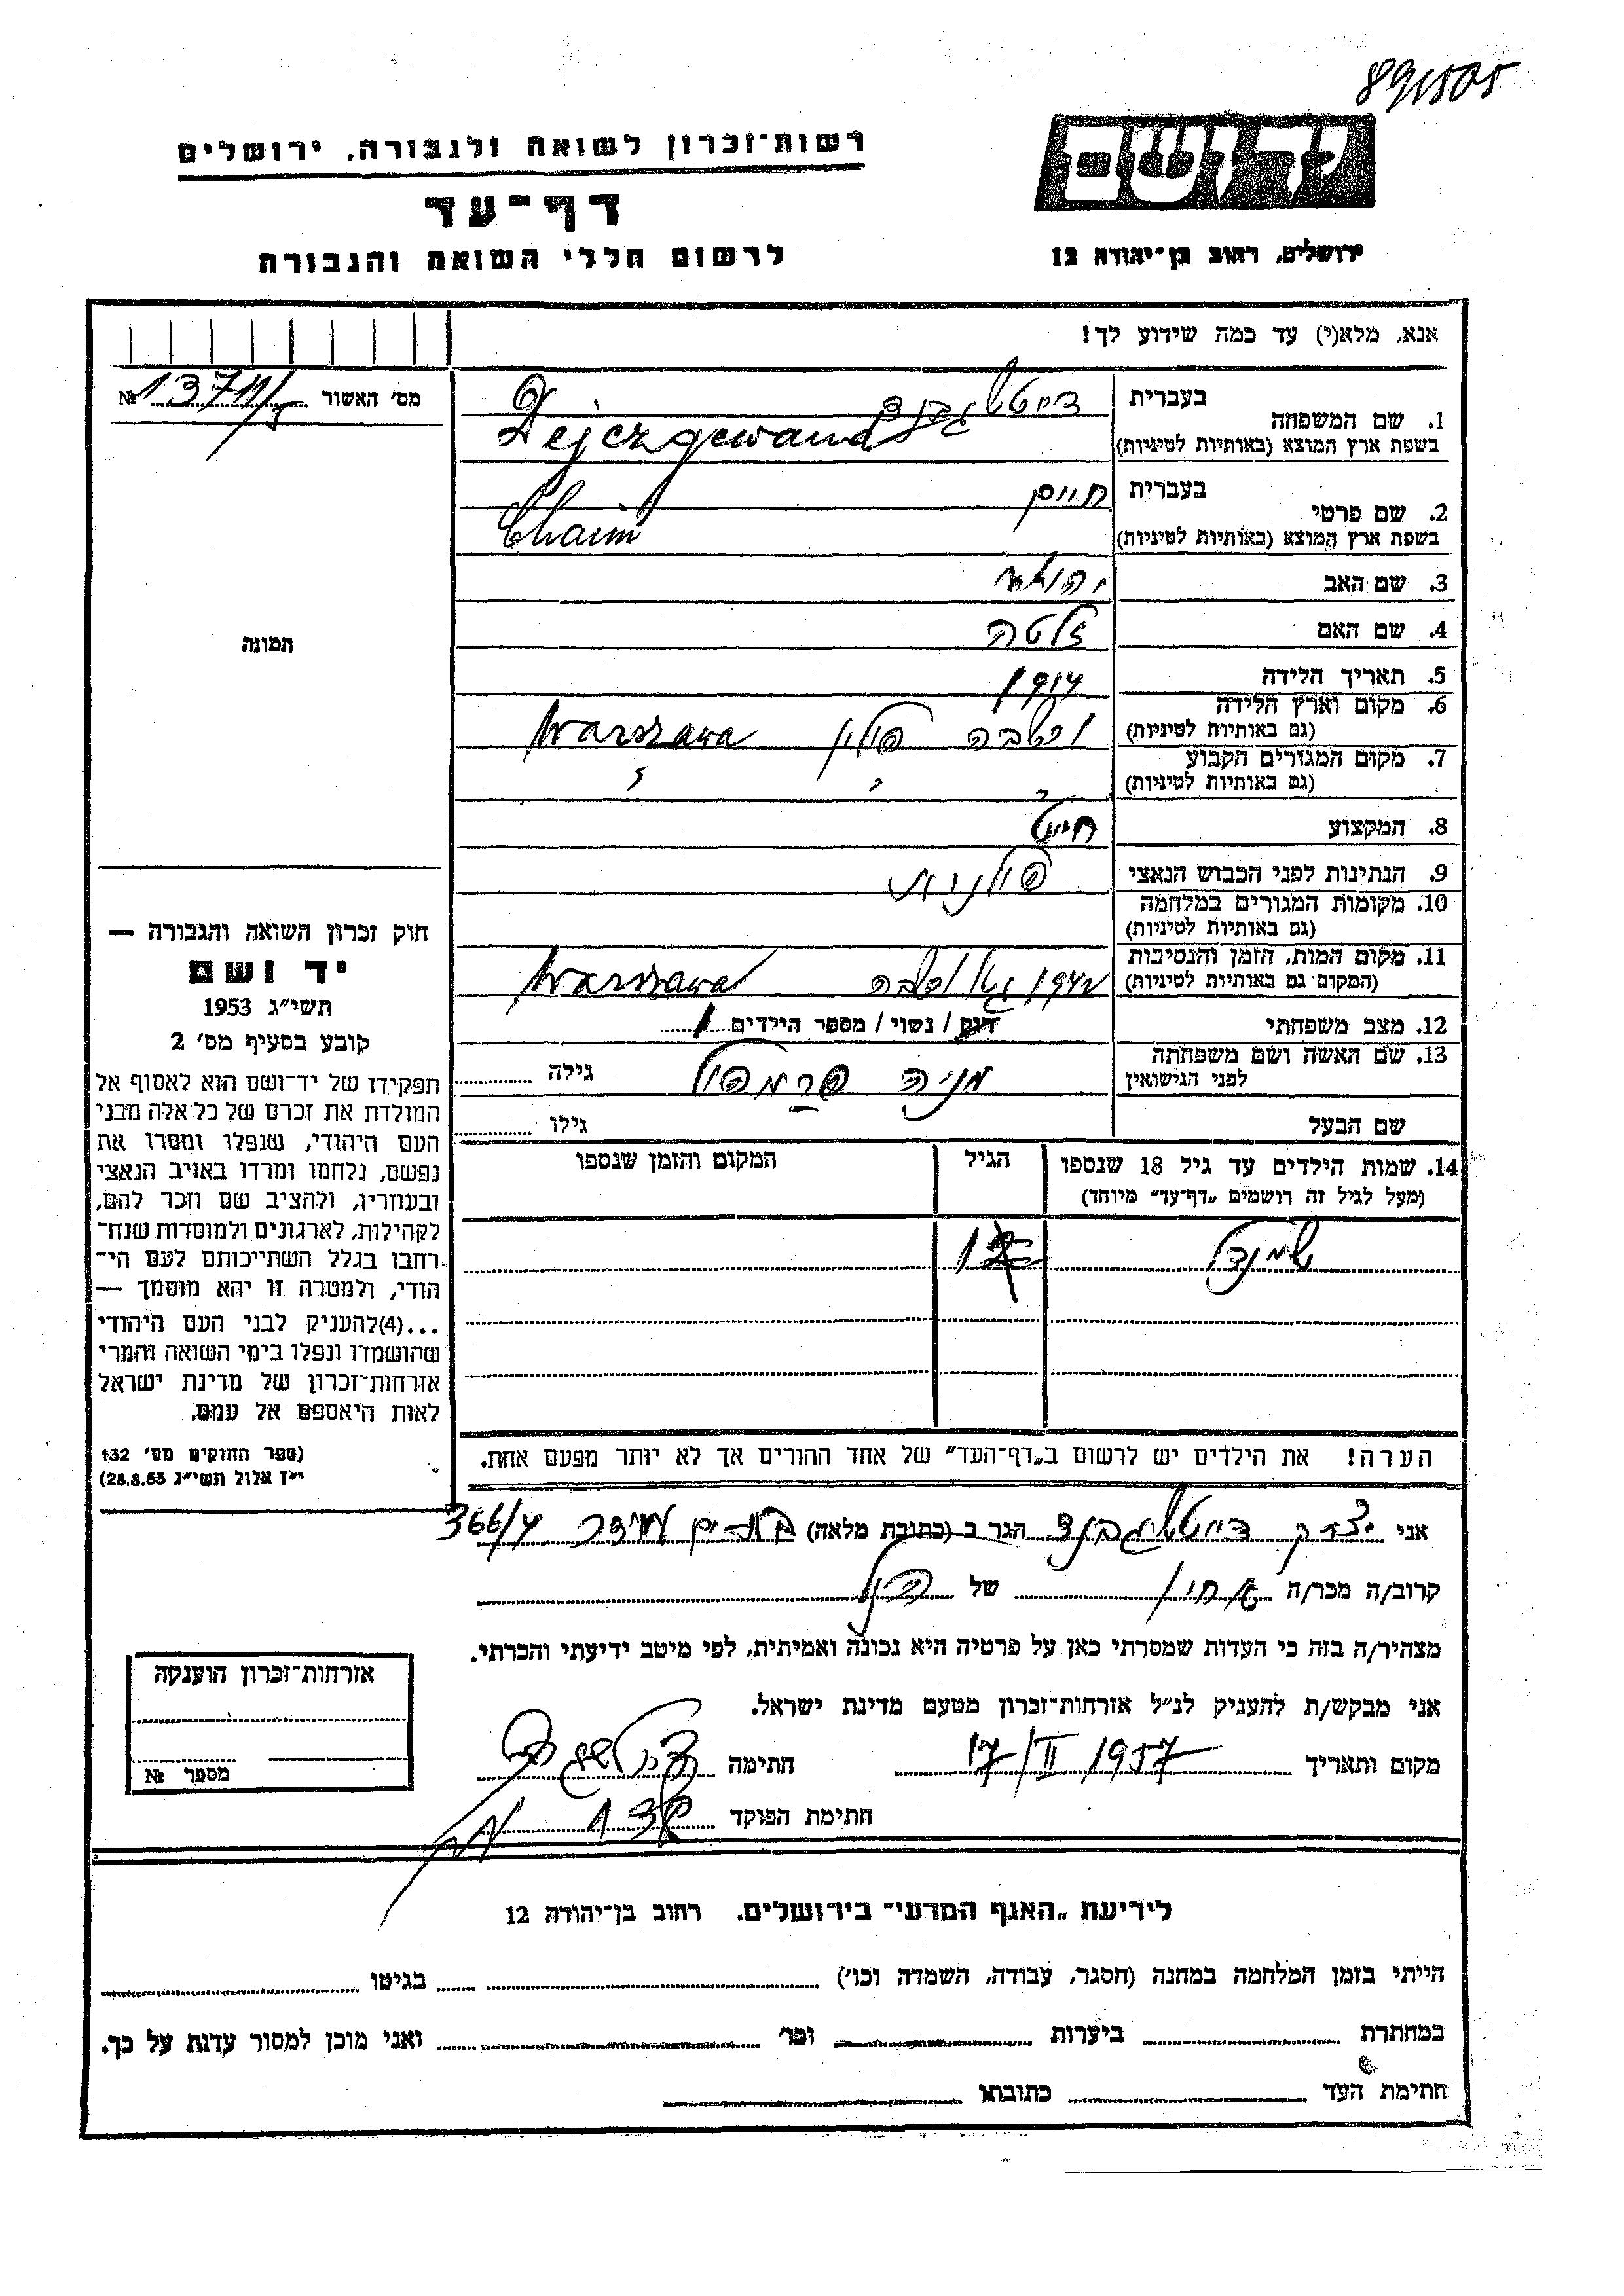 891505
רשות־זכרון לשואה ולגבורה, ירושלים
דף־עד
לרשום חללי השואה והגבורה
יד ושם
ירושלים, רחוב בן־יהודה 12
אנא, מלא(י) עד כמה שידוע לך!
מס' האשור № 13711/
1. שם המשפחה
בעברית
בשפת ארץ המוצא (באותיות לטיניות) Dejczgewand
2. שם פרטי
בעברית חיים
בשפת ארץ המוצא (באותיות לטיניות) Chaim
3. שם האב יהושע
4. שם האם זלטה
5. תאריך הלידה
6. מקום וארץ הלידה (גם באותיות לטיניות) ורשבה פולין Warszawa
7. מקום המגורים הקבוע (גם באותיות לטיניות) " " "
8. המקצוע חייט
9. הנתינות לפני הכבוש הנאצי פולנית
10. מקומות המגורים במלחמה (גם באותיות לטיניות)
11. מקום המות, הזמן והנסיבות (המקום גם באותיות לטיניות) 1942 גטו ורשבה Warszawa
12. מצב משפחתי רווק / נשוי / מספר הילדים 1
13. שם האשה ושם משפחתה לפני הנישואין מניה גילה
שם הבעל גילו
14. שמות הילדים עד גיל 18 שנספו (מעל לגיל זה רושמים "דף־עד" מיוחד) הגיל המקום והזמן שנספו
הערה! את הילדים יש לרשום ב"דף־העד" של אחד ההורים אך לא יותר מפעם אחת.
תמונה
חוק זכרון השואה והגבורה —
יד ושם
תשי"ג 1953
קובע בסעיף מס' 2
תפקידו של יד־ושם הוא לאסוף אל
המולדת את זכרם של כל אלה מבני
העם היהודי, שנפלו ומסרו את
נפשם, נלחמו ומרדו באויב הנאצי
ובעוזריו, ולהציב שם וזכר להם,
לקהילות, לארגונים ולמוסדות שנח־
רחבו בגלל השתייכותם לעם הי־
הודי, ולמטרה זו יהא מוסמך —
...(4)להעניק לבני העם היהודי
שהושמדו ונפלו בימי השואה והמרי
אזרחות־זכרון של מדינת ישראל
לאות היאספם אל עמם.
(ספר החוקים מס' 132
י"ז אלול תשי"ג 28.8.53)
אני יצחק הגר ב (כתובת מלאה) 366/4
קרוב/ה מכר/ה אחיו של הנ"ל
מצהיר/ה בזה כי העדות שמסרתי כאן על פרטיה היא נכונה ואמיתית, לפי מיטב ידיעתי והכרתי.
אני מבקש/ת להעניק לנ"ל אזרחות־זכרון מטעם מדינת ישראל.
מקום ותאריך 17/II 1957 חתימה
חתימת הפוקד
אזרחות־זכרון הוענקה
מספר №
לידיעת "האגף המדעי" בירושלים. רחוב בן־יהודה 12
הייתי בזמן המלחמה במחנה (הסגר, עבודה, השמדה וכו') בגיטו
במחתרת ביערות וכו' ואני מוכן למסור עדות על כך.
חתימת העד כתובתו